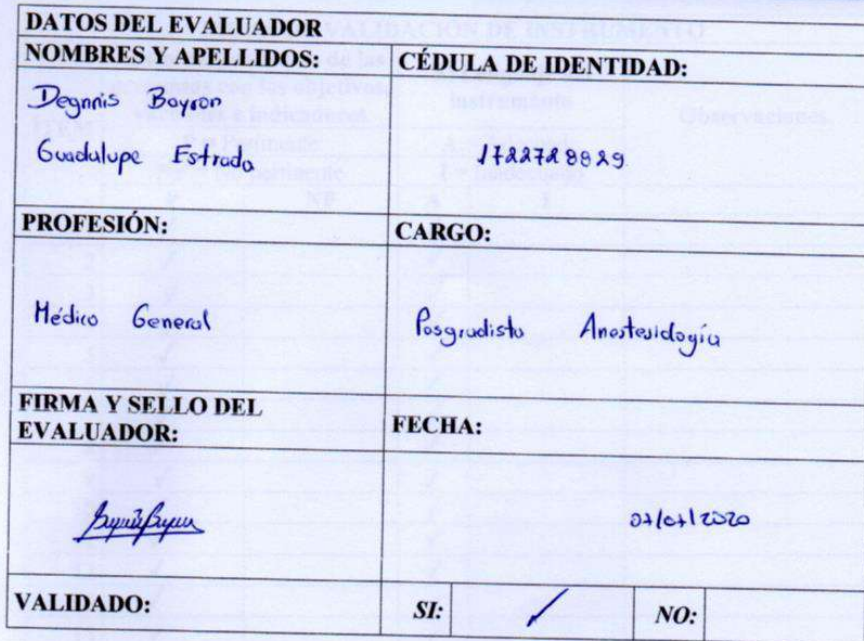 DATOS DEL EVALUADOR
NOMBRES Y APELLIDOS:
CÉDULA DE IDENTIDAD:
Degnnis Bayron
Guadalupe Estrada
PROFESIÓN:
CARGO:
Médico General
Posgradista Anestesiología
FIRMA Y SELLO DEL
EVALUADOR:
FECHA:
VALIDADO:
SI:
✓
NO: